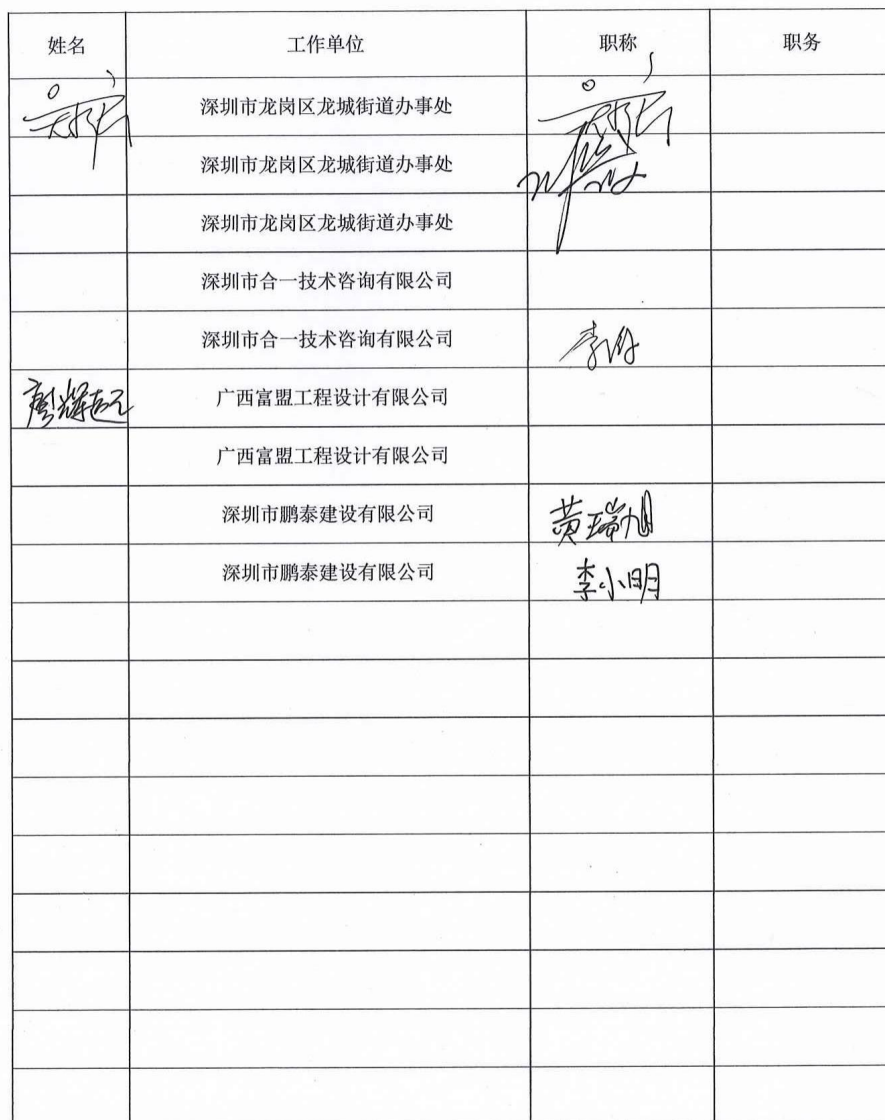 姓名 工作单位 职称 职务
深圳市龙岗区龙城街道办事处
深圳市龙岗区龙城街道办事处
深圳市龙岗区龙城街道办事处
深圳市合一技术咨询有限公司
深圳市合一技术咨询有限公司
廖辉 广西富盟工程设计有限公司
广西富盟工程设计有限公司
深圳市鹏泰建设有限公司 黄瑞旭
深圳市鹏泰建设有限公司 李小明